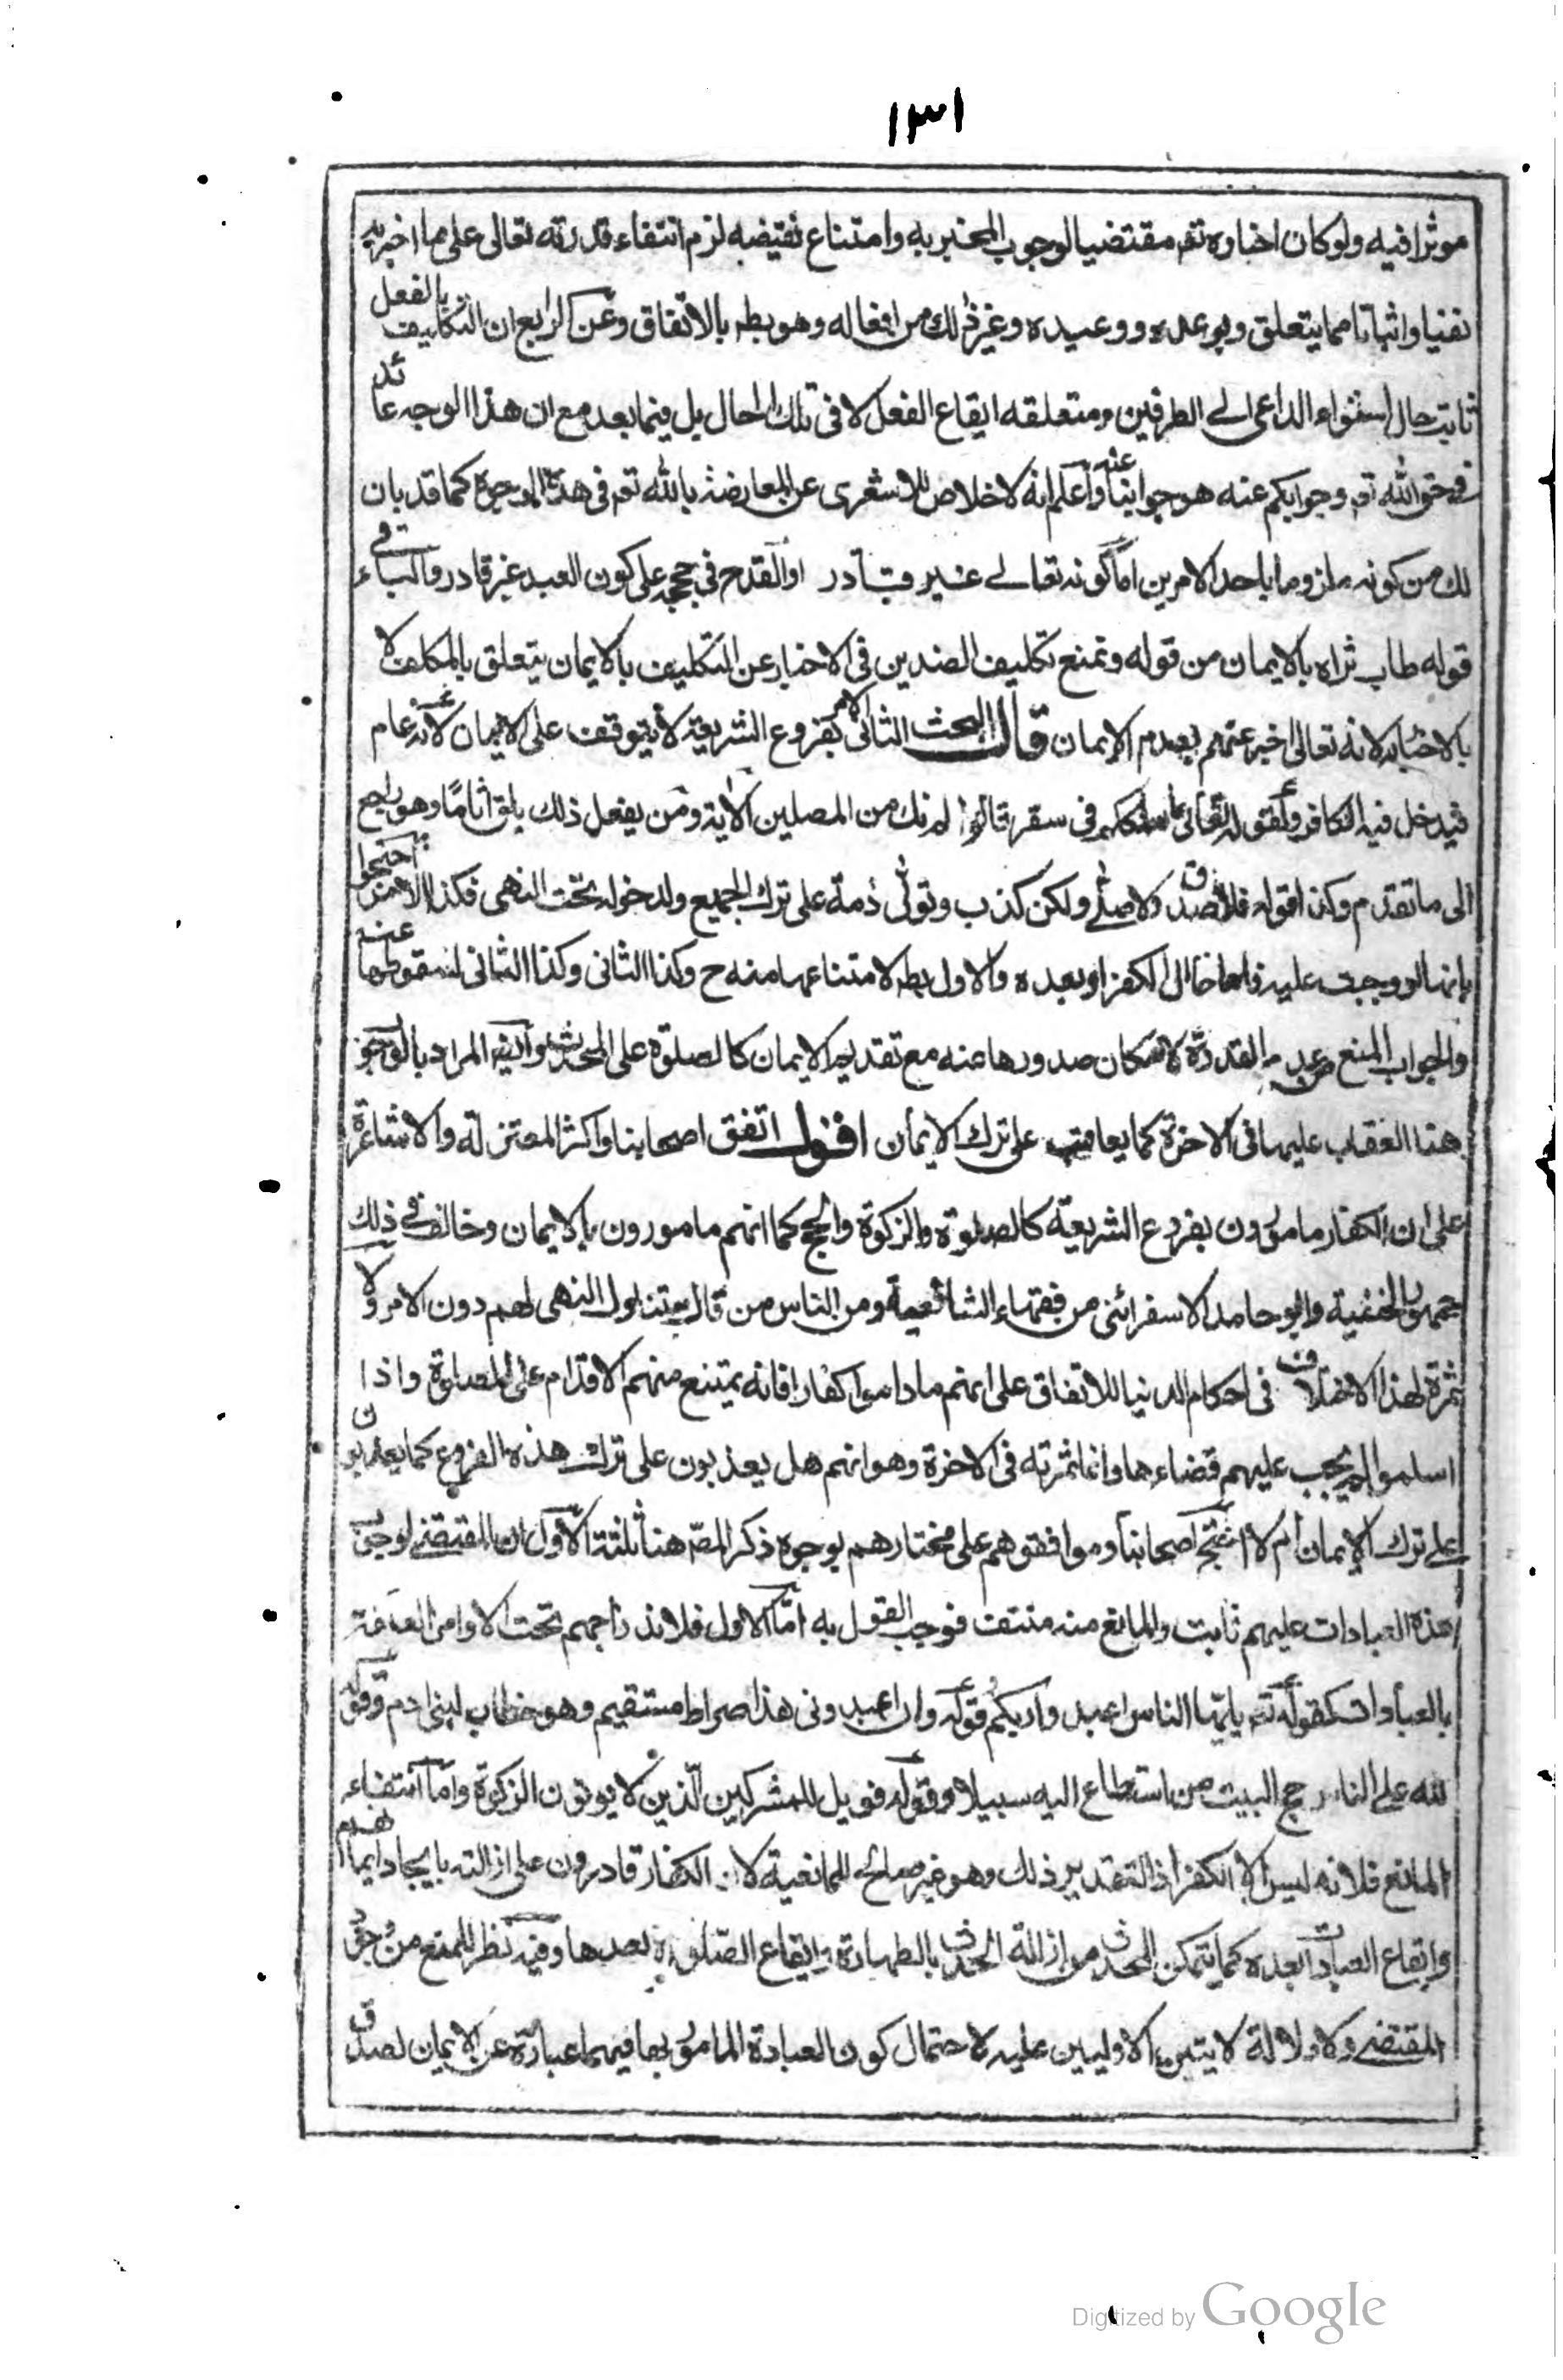 ١٣١
موثرا فيه ولو كان اخباره تعم مقتضيا لوجوب المخبر به وامتناع نقيضه لزم انتفاء قدرته تعالى على ما اخبر به
نفيا واثباتا مما يتعلق وبوعده ووعيده وغير ذلك من افعاله وهو بط بالاتفاق وعن الرابع ان التكليف بالفعل
ثابت حال استواء الداعى الى الطرفين ومتعلقه ايقاع الفعل لا فى تلك الحال بل فيما بعد مع ان هذا الوجه عائد
فى حق الله تعم وجوابكم عنه هو جوابنا عنه واعلم انه لا خلاص للاشعرى عن المعارضة بالله تعم فى هذه الوجوه كما قد بان
لك من كونه ملزوما باحد الامرين اما كونه تعالى غير قادر او القدح فى حججه على كون العبد غير قادر والباء فى
قوله طاب ثراه بالايمان من قوله وتمنع تكليف الضدين فى الاخبار عن التكليف بالايمان يتعلق بالمكلف لا
بالاخبار لانه تعالى اخبر عنهم بعدم الايمان قال البحث الثانى الامر بفروع الشريعة لا يتوقف على الايمان لانه عام
فيدخل فيه الكافر ولقوله تعالى ما سلككم فى سقر قالوا لم نك من المصلين الاية ومن يفعل ذلك يلق اثاما وهو راجع
الى ما تقدم وكذا قوله فلا صدق ولا صلى ولكن كذب وتولى ذمة على ترك الجميع ولدخوله تحت النهى فكذا الامر احتجوا
بانها لو وجبت عليه فاما حال الكفر او بعده والاول بط لامتناعها منه ح وكذا الثانى وكذا الثانى لسقوطها عنه
والجواب المنع من عدم القدرة لامكان صدورها عنه مع تقديم الايمان كالصلوة على المحدث وايضا المراد بالوجوب
هنا العقاب عليها فى الاخرة كما يعاقب على ترك الايمان اقول اتفق اصحابنا واكثر المعتزلة والاشاعرة
على ان الكفار مامورون بفروع الشريعة كالصلوة والزكوة والحج كما انهم مامورون بالايمان وخالف فى ذلك
جمهور الحنفية وابو حامد الاسفرائنى من فقهاء الشافعية ومن الناس من قال بتناول النهى لهم دون الامر ولا
ثمرة لهذا الاختلاف فى احكام الدنيا للاتفاق على انهم ما داموا كفارا فانه يمتنع منهم الاقدام على الصلوة واذا
اسلموا لم يجب عليهم قضاءها وانما ثمرته فى الاخرة وهو انهم هل يعذبون على ترك هذه الفروع كما يعذبون
على ترك الايمان ام لا احتج اصحابنا وموافقوهم على مختارهم بوجوه ذكر المص هنا ثلثة الاول ان المقتضى لوجوب
هذه العبادات عليهم ثابت والمانع منه منتف فوجب القول به اما الاول فلاندراجهم تحت الاوامر العامة
بالعبادات كقوله تعم يايها الناس اعبدوا ربكم قوله وان اعبدونى هذا صراط مستقيم وهو خطاب لبنى ادم وقوله
لله على الناس حج البيت من استطاع اليه سبيلا وقوله فويل للمشركين الذين لا يوتون الزكوة واما انتفاء
المانع فلانه ليس الا الكفر اذ التقدير ذلك وهو غير صالح للمانعية لان الكفار قادرون على ازالته بايجاد ايمانهم
وايقاع العبادات بعده كما يتمكن المحدث من ازالة الحدث بالطهارة وايقاع الصلوة بعدها وفيه نظر للمنع من وجود
المقتضى ولا دلالة لايتين الاوليين عليه لاحتمال كون العبادة المامور بها فيهما عبارة عن الايمان لصدق
Digitized by Google